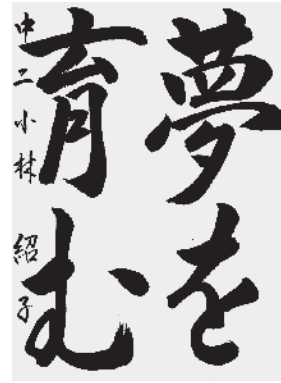 夢を
育む
中二 小林 紹子